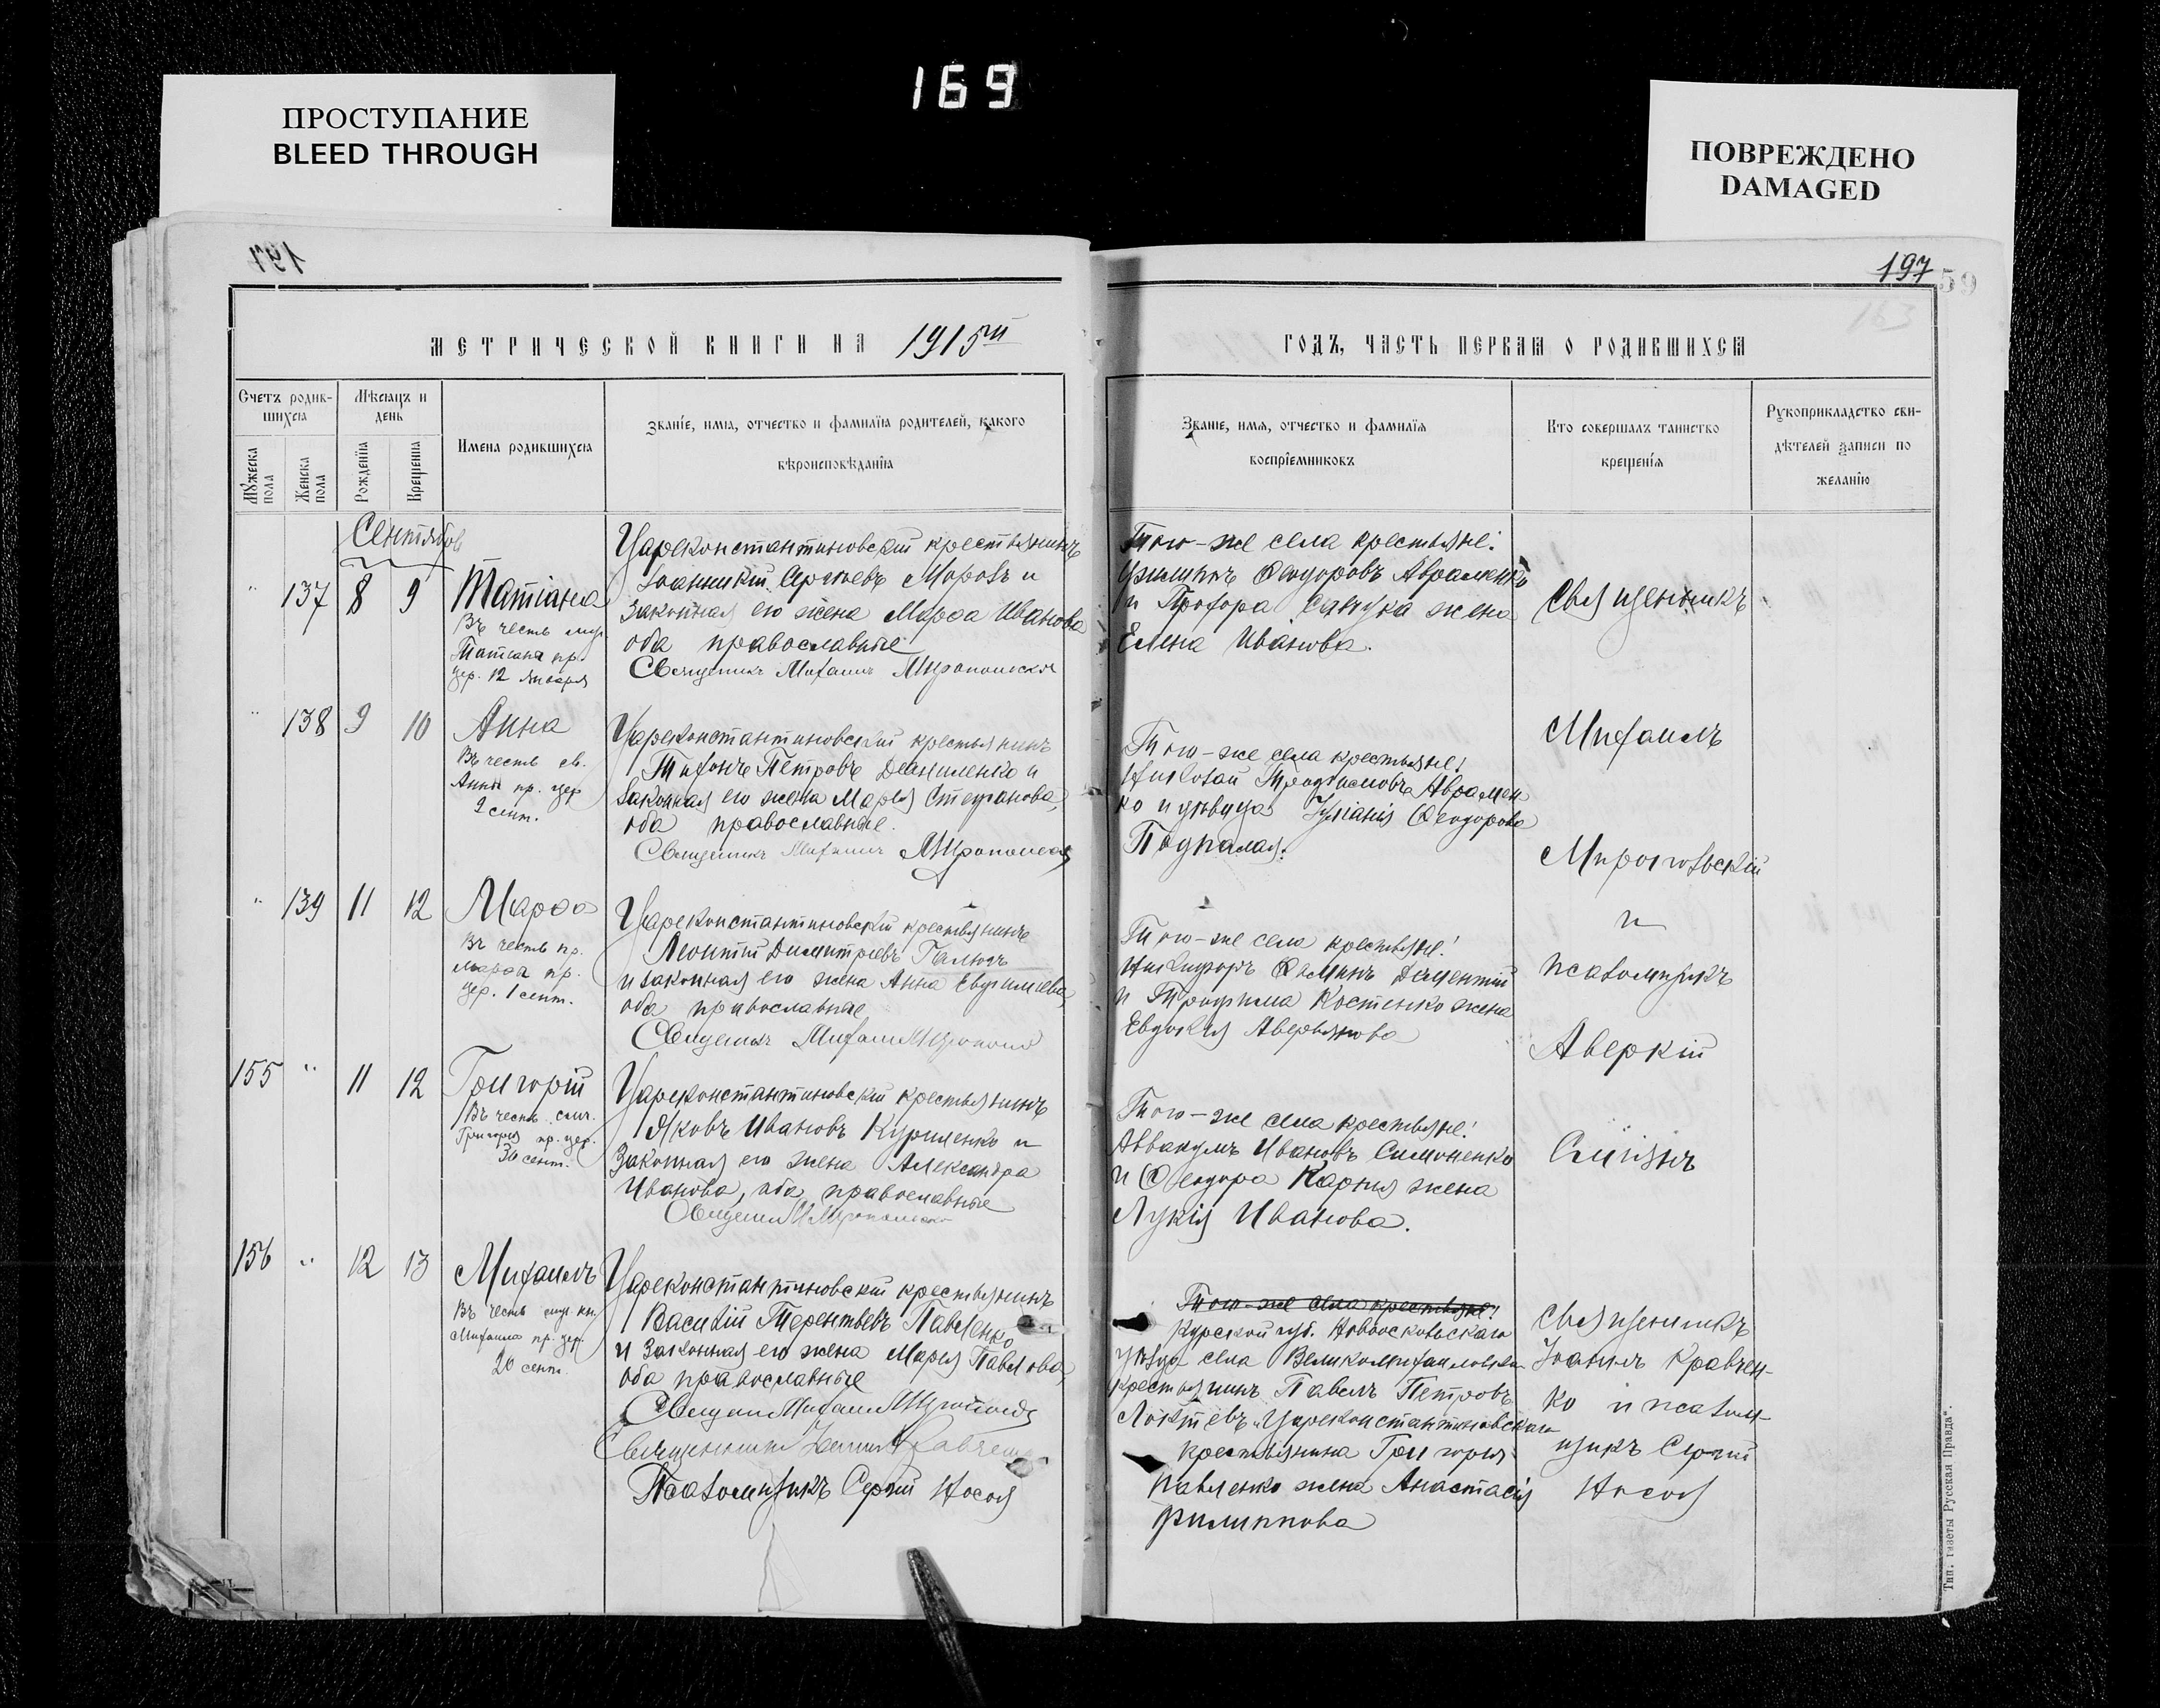 169
ПРОСТУПАНИЕ
BLEED THROUGH
ПОВРЕЖДЕНО
DAMAGED
197
197
59
163
МЕТРИЧЕСКОЙ КНИГИ НА 1915й
ГОДЪ, ЧАСТЬ ПЕРВАЯ О РОДИВШИХСЯ
Счетъ родив-
шихся
Мѣсяцъ и
день
Мужеска
пола
Женска
пола
Рожденія
Крещенія
Имена родившихся
Званіе, имя, отчество и фамилія родителей, какого
вѣроисповѣданія
Званіе, имя, отчество и фамилія
воспріемниковъ
Кто совершалъ таинство
крещенія
Рукоприкладство сви-
дѣтелей записи по
желанію
Сентябрь
137 8 9 Татіана
Въ честь муч.
пр.
цер. 12 января
Цареконстантиновскій крестьянинъ
Іоанникій Сергіевъ Морозъ и
законная его жена Марѳа Иванова
оба православные
Священникъ Михаилъ
Того-же села крестьяне:
Филиппъ Ѳеодоровъ Авраменко
и Прохора Савчука жена
Елена Иванова.
138 9 10 Анна
Въ честь св.
Анны пр. цер
9 сент.
Цареконстантиновскій крестьянинъ
Тихонъ Петровъ Даниленко и
законная его жена Марія Стефанова,
оба православные.
Священникъ Михаилъ
Того-же села крестьяне:
Николай Трофимовъ Аврамен
ко и дѣвица Ѳеодорова
139 11 12 Марѳа
Въ честь пр.
Марѳа пр.
цер. 1 сент.
Цареконстантиновскій крестьянинъ
Леонтій Димитріевъ
и законная его жена Анна Евфиміева,
оба православные
Священникъ Михаилъ
Того-же села крестьяне:
Никифоръ Ѳоминъ Дементій
и Трофима Костенко жена
Евдокія Аверьянова
155 11 12 Григорій
Въ честь
Григорія пр. цер.
30 сент.
Цареконстантиновскій крестьянинъ
Яковъ Ивановъ Куриленко и
законная его жена Александра
Иванова, оба православные
Того-же села крестьяне:
Аввакумъ Ивановъ Симоненко
и Ѳеодора Карпія жена
Лукія Иванова.
156 12 13 Михаилъ
Въ честь кн.
Михаила пр. цер.
20 сент.
Цареконстантиновскій крестьянинъ
Василій Терентьевъ Павленко
и законная его жена Марія Павлова,
оба православные
Священникъ
Псаломщикъ Сергій Носоля
Того-же села крестьяне:
Курской губ. Новооскольскаго
уѣзда села
крестьянинъ Павелъ Петровъ
Локтевъ и Цареконстантиновскаго
крестьянина Григорія
Павленко жена Анастасія
Филиппова
Священникъ
Михаилъ
Миропольскій
и
псаломщикъ
Аверкій
Священникъ
Іоаннъ Кравчен-
ко и псалом-
щикъ Сергій
Носоля
Тип. газеты Русская Правда".